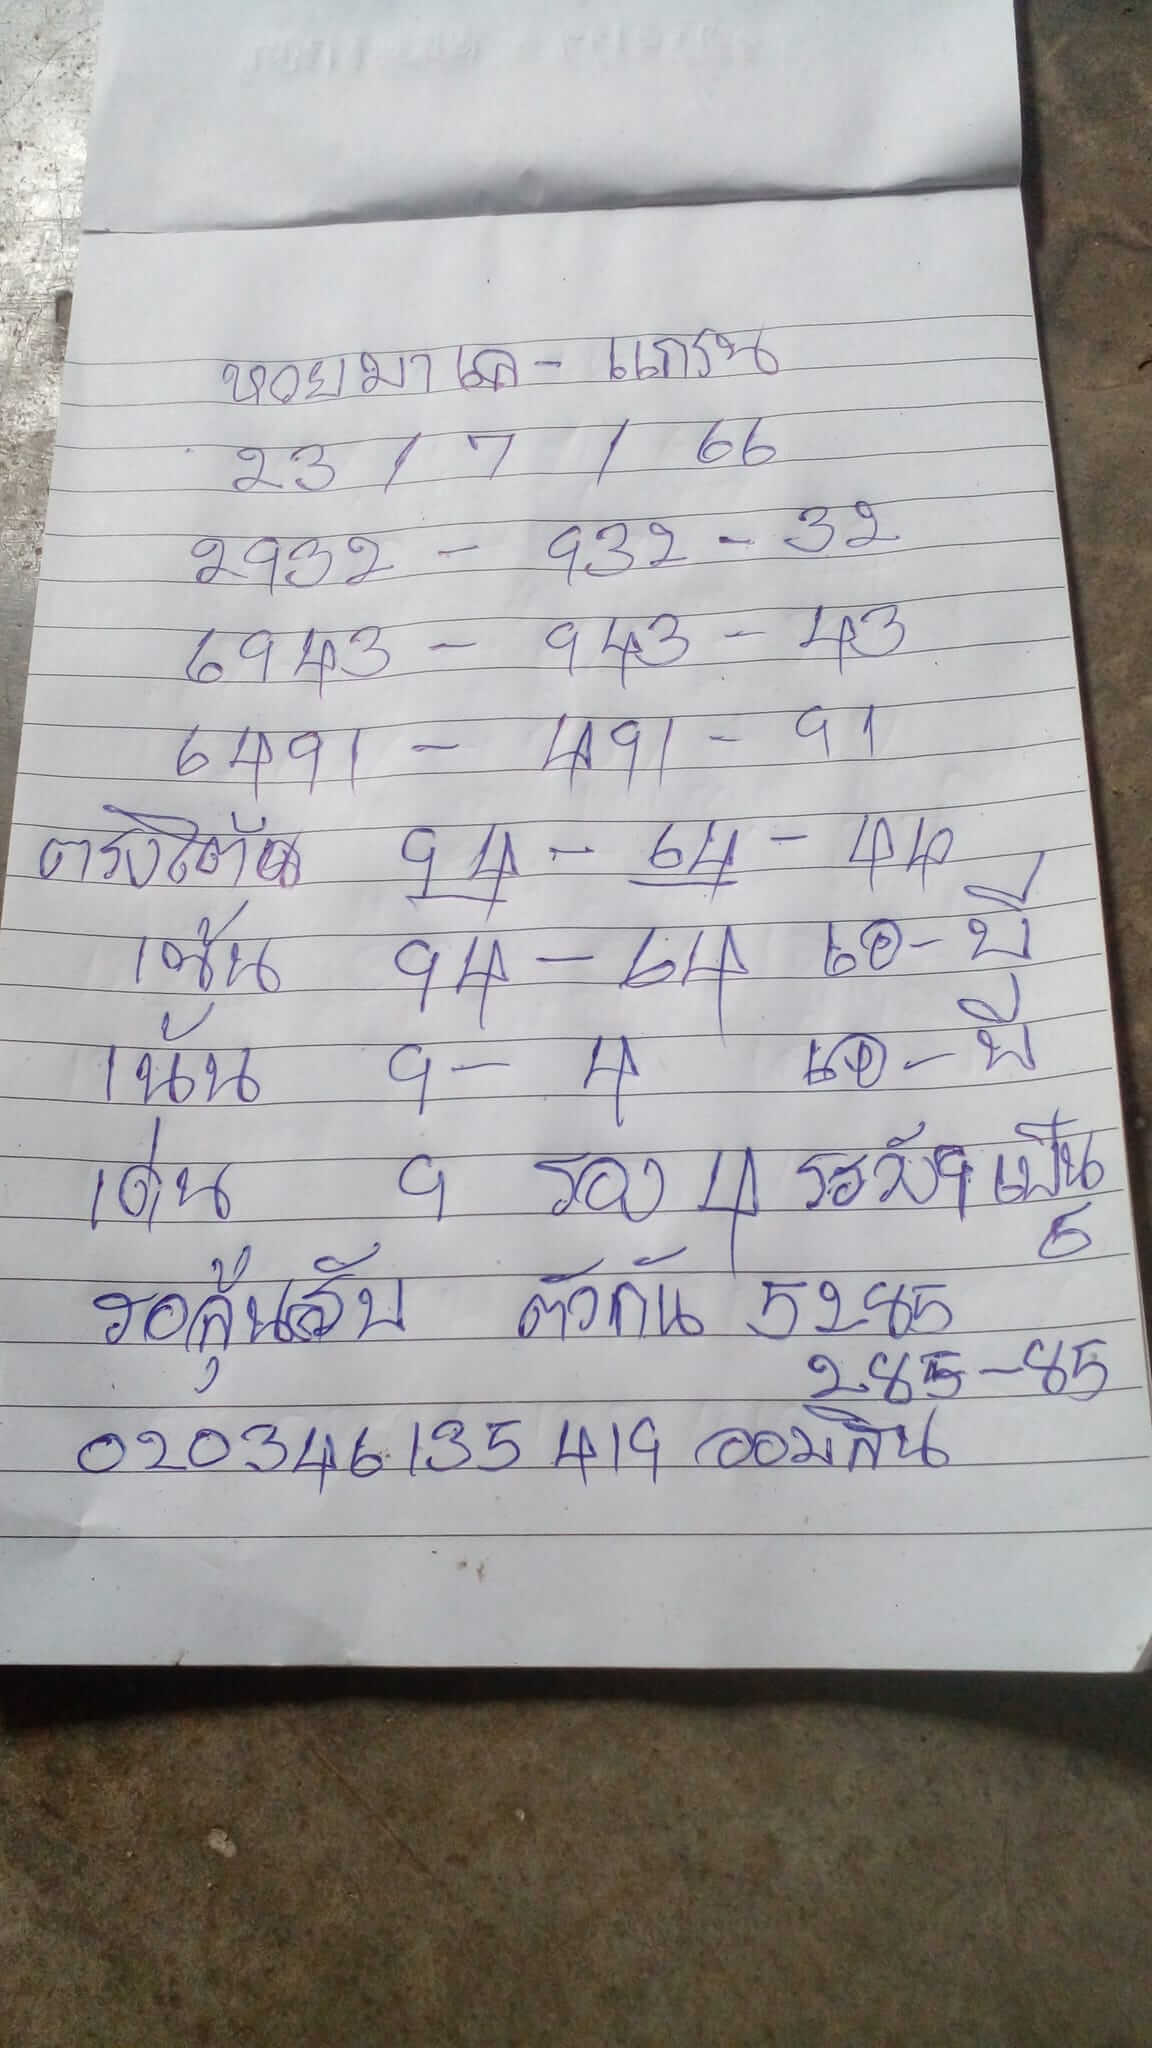 หวยมาเล - แกรน
23 / 7 / 66
2932 - 932 - 32
6943 - 943 - 43
6491 - 491 - 91
ตรงโต๊ด 94 - 64 - 44
เช้น 94 - 64 เอ - บี
เน้น 9 - 4 เอ - บี
เด่น 9 รอง 4 ระวัง 9 เป็น
5
รอลุ้นสับ ตัวกัน 5285
285 - 85
020346135419 ออมสิน